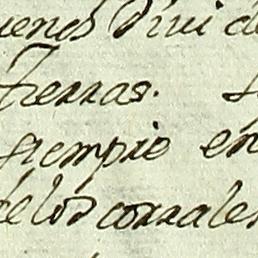 uenos Divi de
tierras. s
siempre en
de los corrales